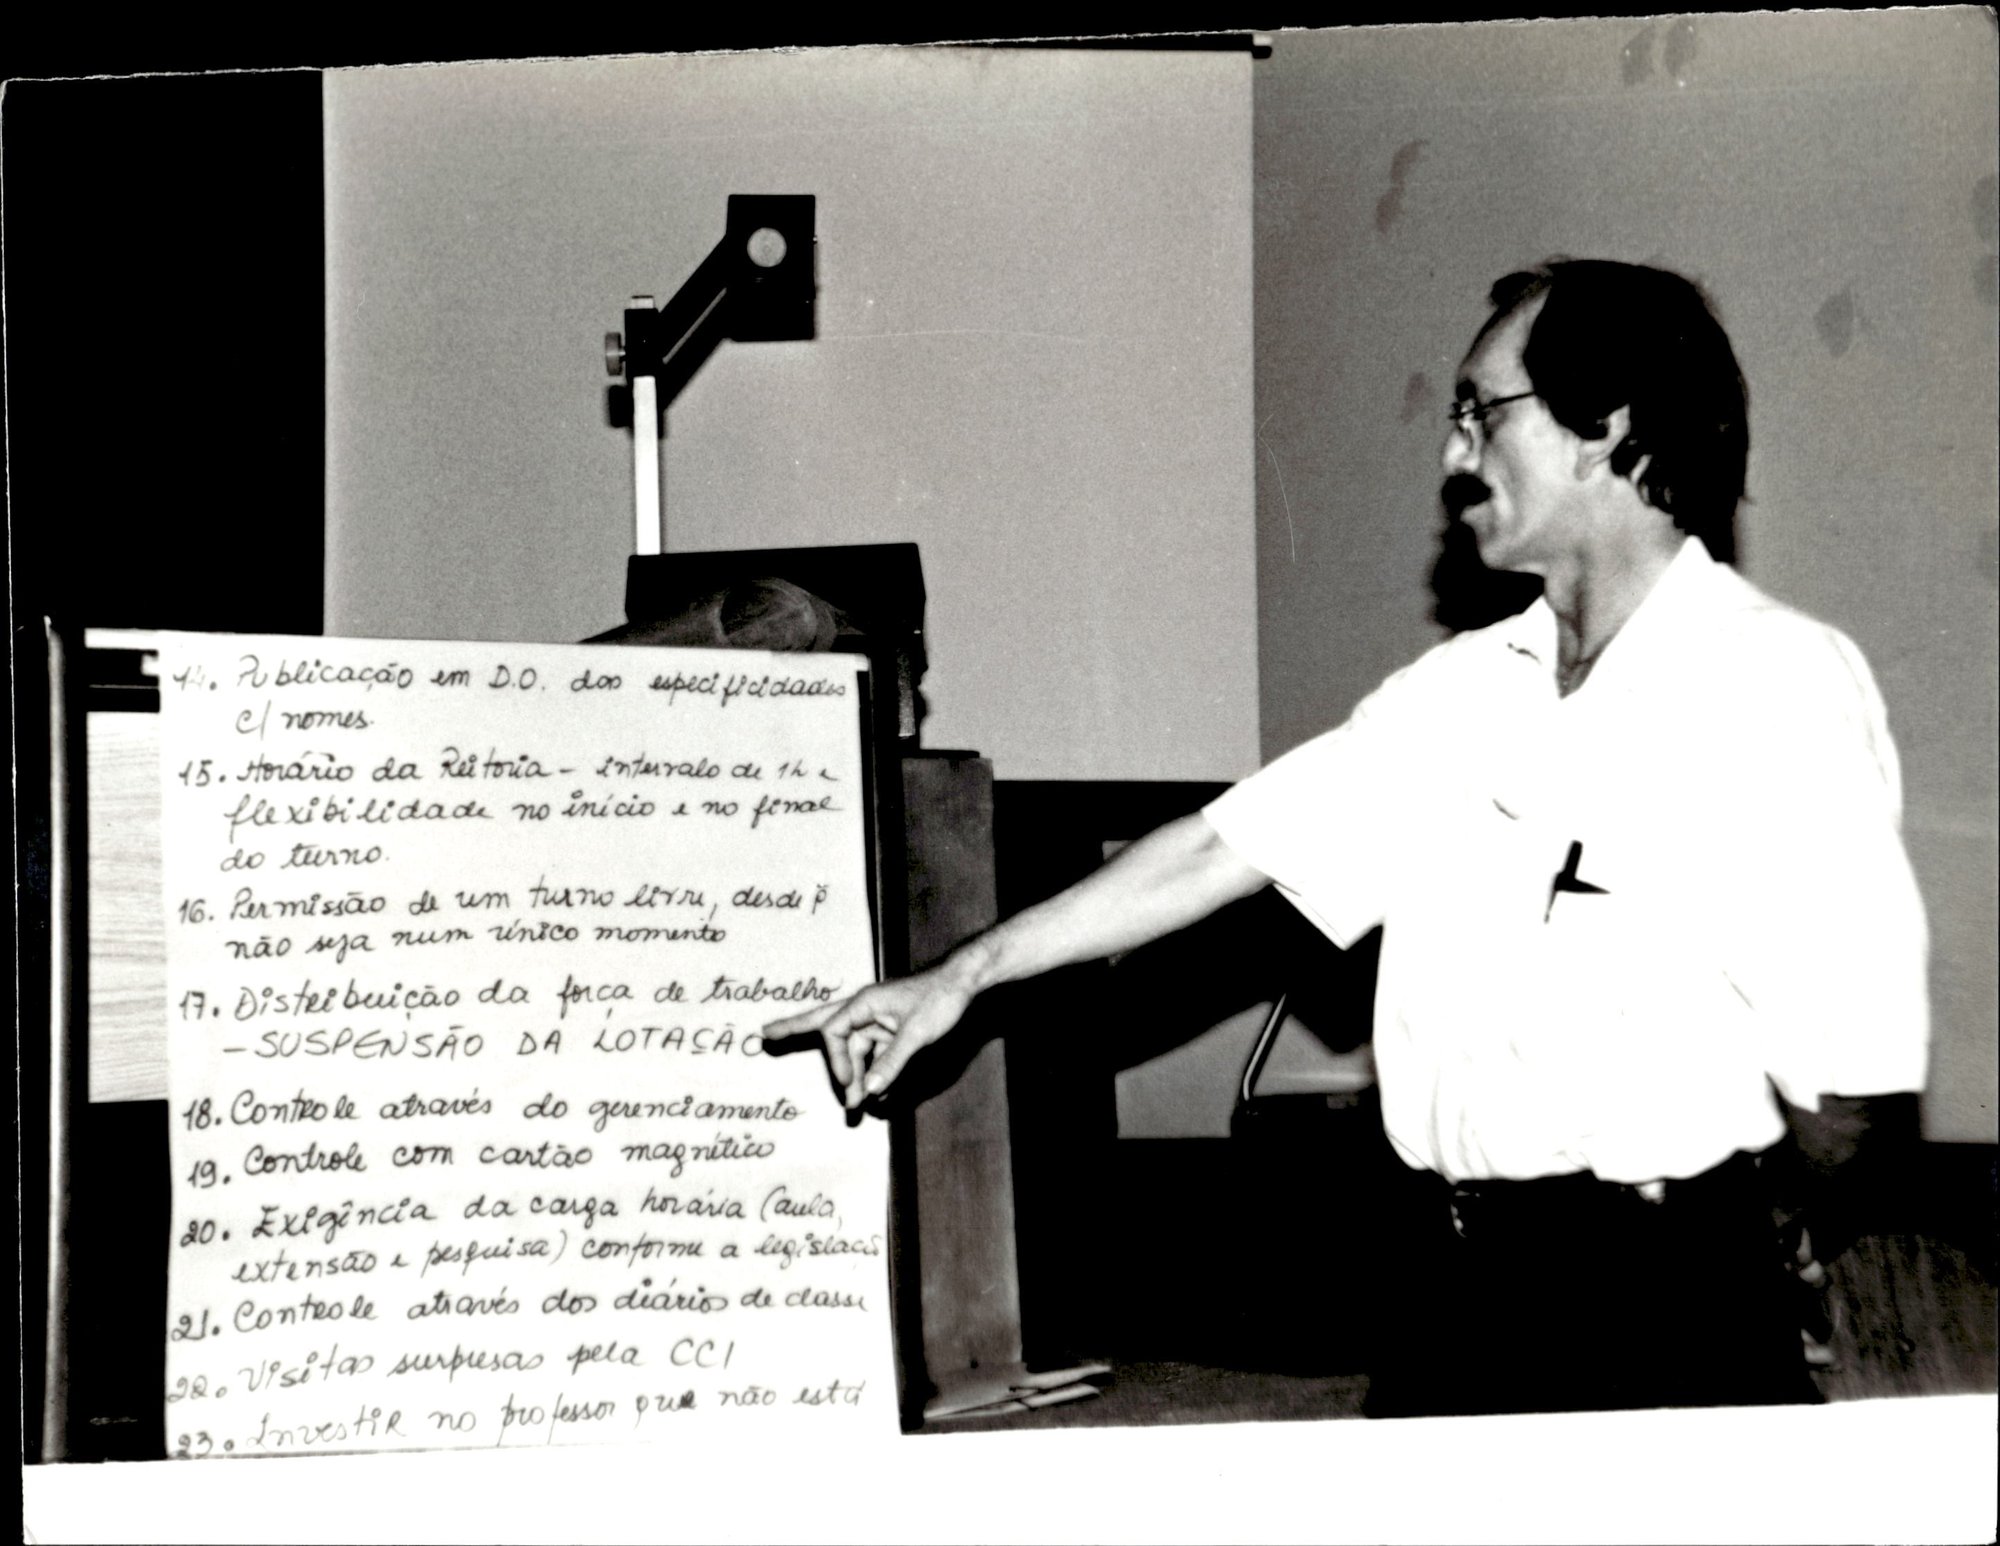 14. Publicação em D.O. das especificidades
c/ nomes.
15. Horário da Reitoria - intervalo de 1h e
flexibilidade no início e no final
do turno.
16. Permissão de um turno livre, desde q
não seja num único momento
17. Distribuição da força de trabalho
- SUSPENSÃO DA LOTAÇÃO
18. Controle através do gerenciamento
19. Controle com cartão magnético
20. Exigência da carga horária (aula,
extensão e pesquisa) conforme a legislação
21. Controle através dos diários de classe
22. Visitas surpresas pela CCI
23. Investir no professor que não está